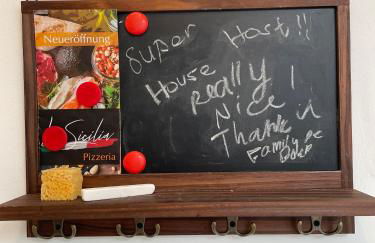 Neueröffnung
La Sicilia
Pizzeria
Super Host!!
House Really
Nice!
Thank
Family